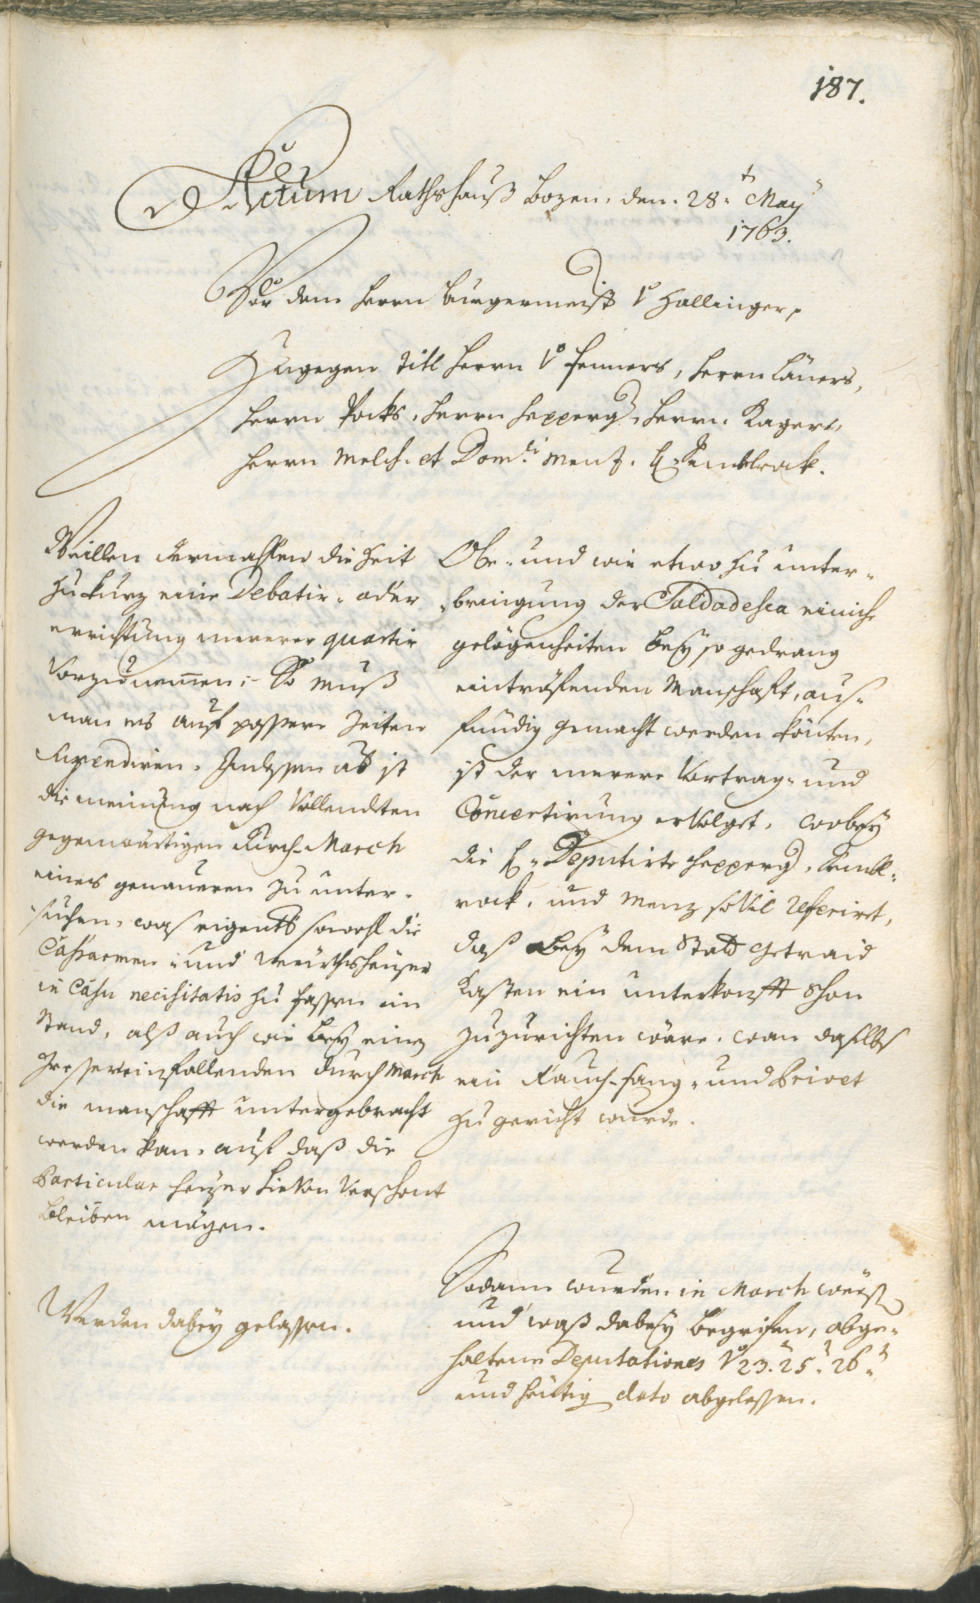 187.
Actum Rathshauß Bozen, den 28.t May
1763.
Vor dem Herrn Burgermeistr v Hallinger,
Zugegen Titl Herrn v Fenners, Herrn Läners,
Herrn Poks, Herrn Hepperg, Herrn Kagers,
Herrn Melch. et Dom.ci Menz. H Kinseleock.
Weillen dermahlen die Zeit
zu kurz eine Debatir- oder
errichtung mererer quartir
Vorzunemmen; So muß
man es auf possere Zeiten
suspendiren. Indessen ab ist
die meinung nach Vollendten
gegenwärtigen Kirch-March
eines genaueren zu unter-
suchen, was eigentl sowohl die
Cassarmen- und Würthsheuser
in Casu necessitatis zu fassen im
Stand, alß auch wie bey einen
grosser einfallenden Durch March
die manschafft untergebracht
werden kan, auf daß die
Particular heuser hievon Verschont
bleiben mögen.
Werden dabey gelassen.
Ob- und wie etwo zu unter-
bringung der Soldadesca einiche
gelögenheiten bey so gedrang
eintröfenden Manschaft, aus-
fündig gemacht werden könten,
ist der merere Vortrag- und
Concertirung ervolget, wobey
die H Deputirte Hepperg, Kinsele-
rock, und Menz sovil referirt,
daß bey dem Statt Getraid
Kasten ein unterkonfft schon
zuzurichten wäre, wan daselbs
ein Rauch-fang- und Privet
zu gericht wurde.
Sodann wurden in March wesen
und waß dabey begrifen, abge-
haltene Deputationes v 23. 25. 26.
und heutig dato abgelesen.